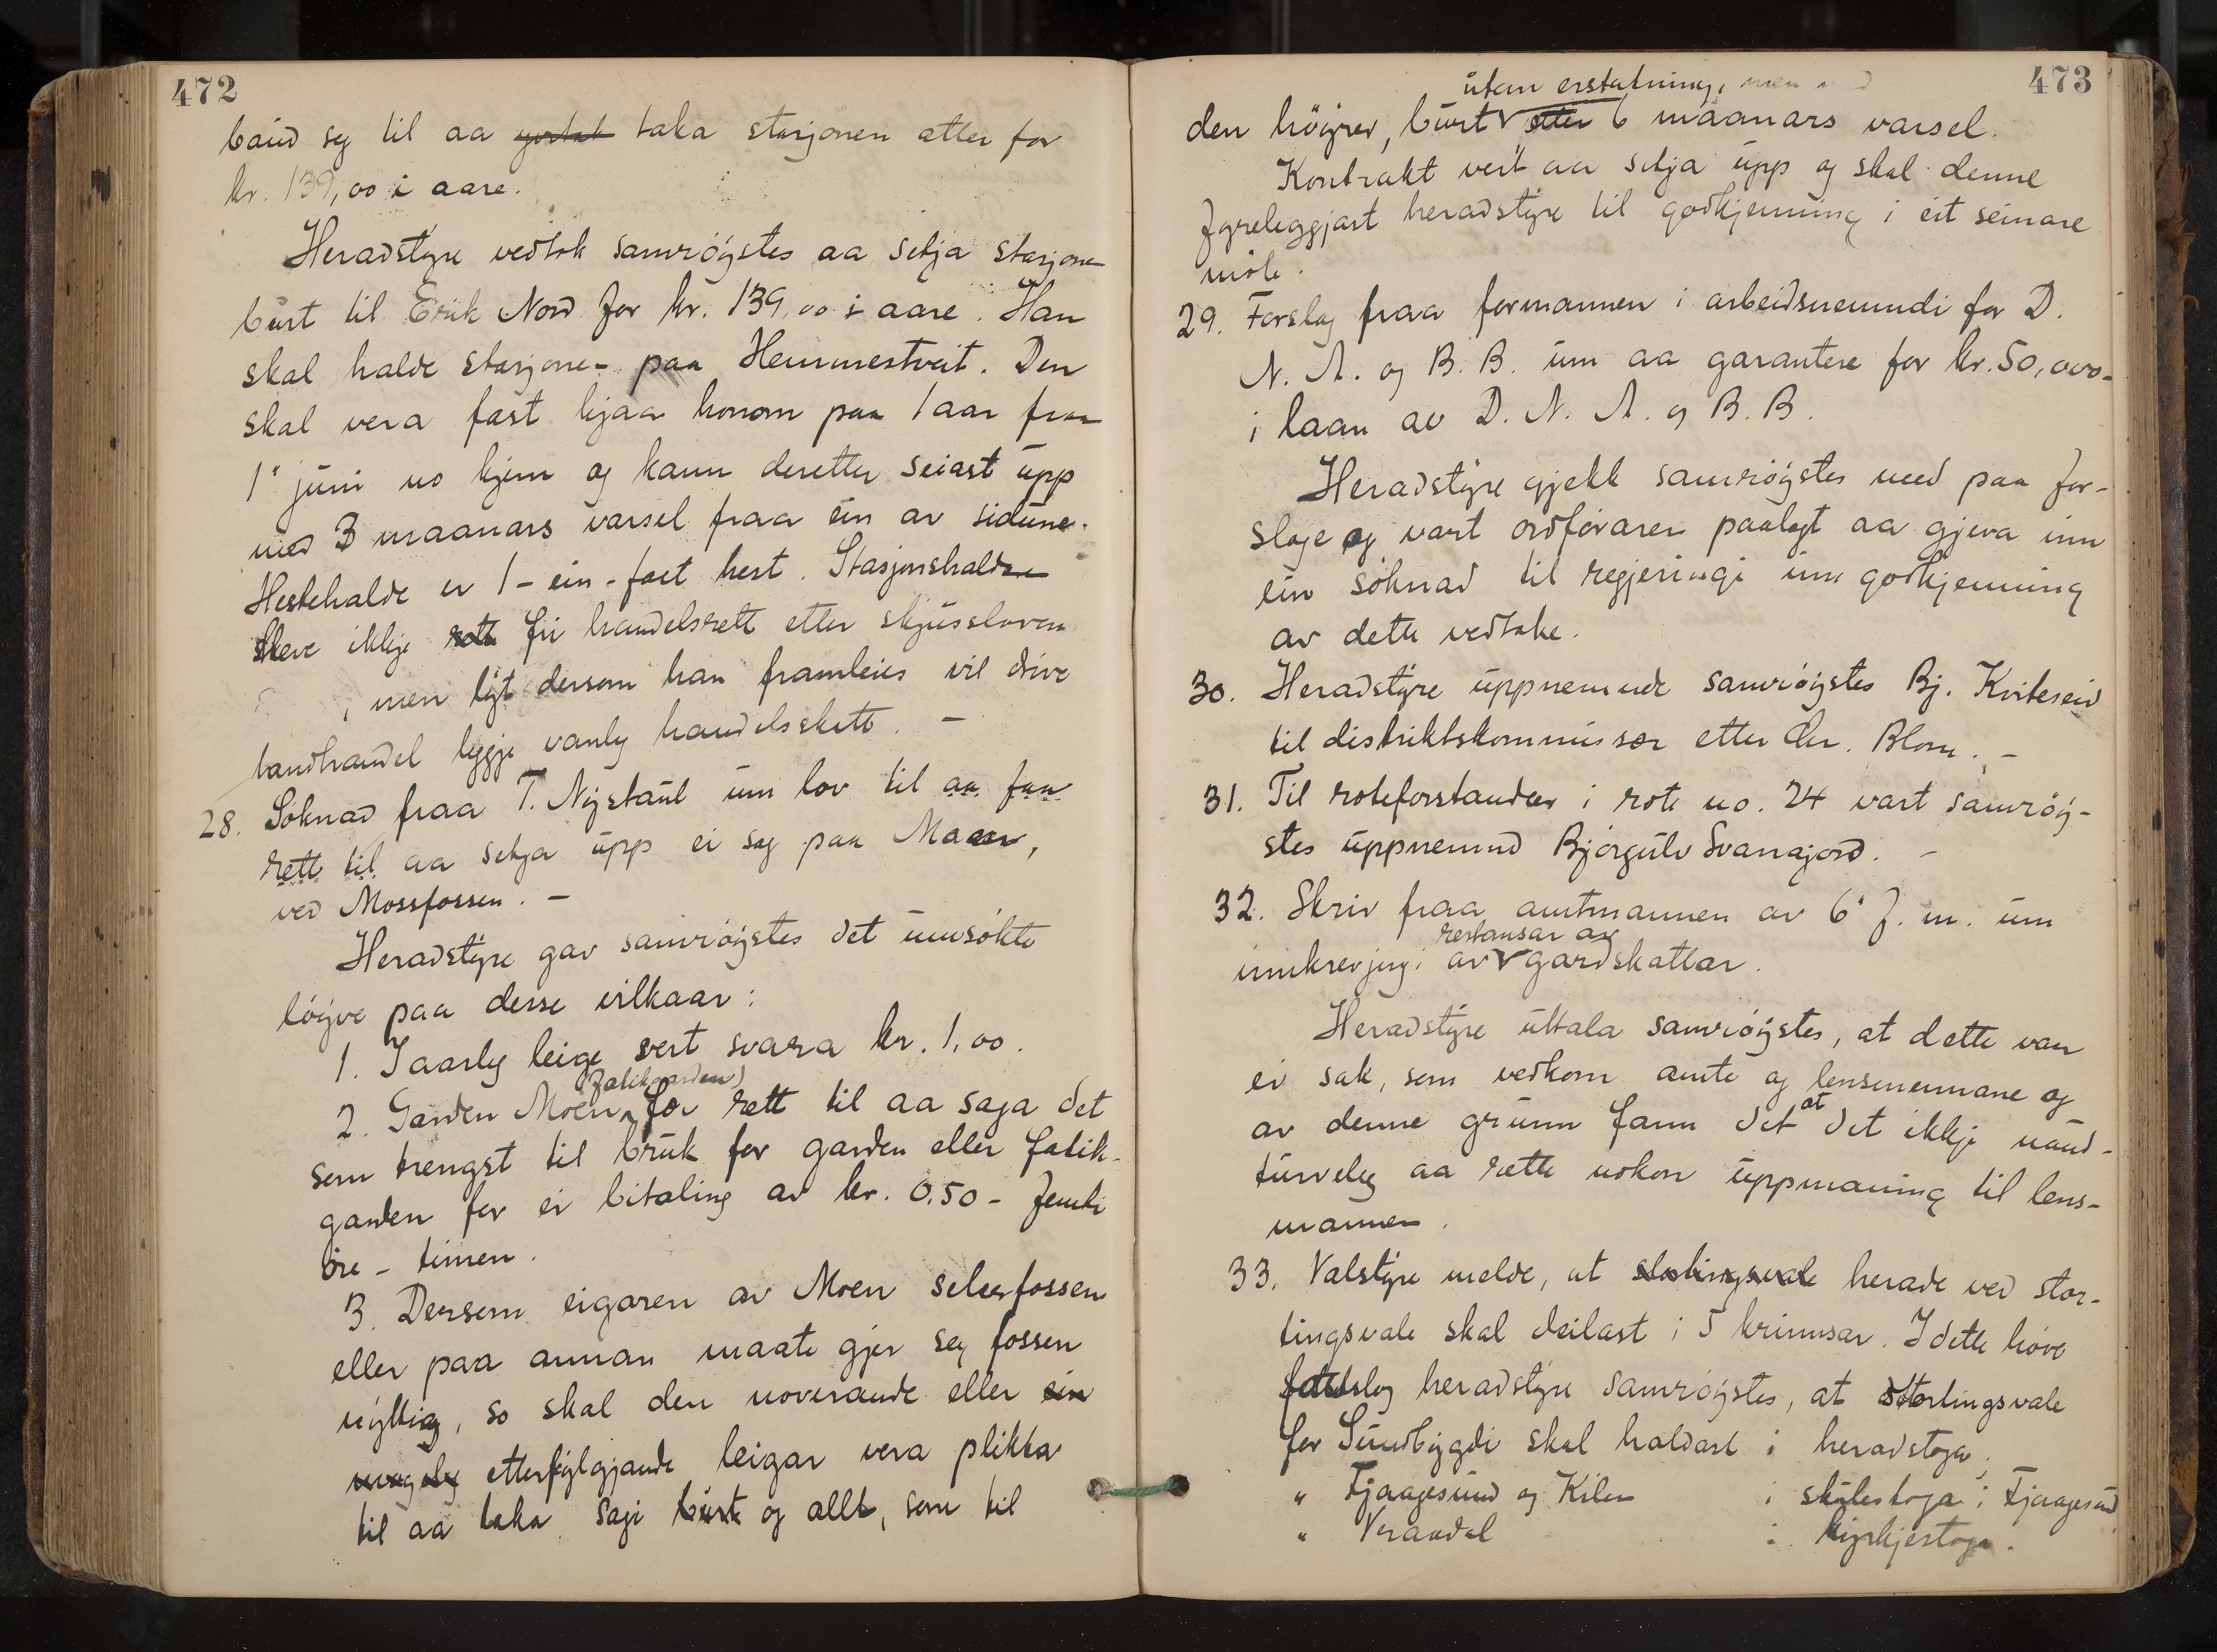 472
baud seg til aa taka stasjonen atter for
kr. 139,00 i aare.
Heradstyre vedtok samrøystes aa setja stasjonen
burt til Erik Nord for kr. 139,00 i aare. Han
skal halde stasjonen paa Hemmestveit. Den
skal vera fast hjaa honom paa 1 aar fraa
1' juni no kjem og kann deretter seiast upp
med 3 maanars varsel fraa ein av sidune.
Hestehalde er 1 - ein - fast hest. Stasjonshaldaren
ikkje fri handelsrett etter skjusslovren
, men lyt dersom han framleies vil drive
landhandel lyggje vanleg handelsskatt. -
28. Söknad fraa T. Nystaul um lov til aa faa
rett til aa setja upp ei sag paa Moen,
ved Mossfossen. -
Heradstyre gav samrøystes det umsökte
løyve paa desse vilkaar:
1. I aarleg leige vert svara kr. 1,00.
(Fatikgarden)
2. Garden Moen for rett til aa saga det
som trengst til bruk for garden eller fatik-
garden for ei bitaling av kr. 0.50 - femti
øre - timen.
3. Dersom eigaren av Moen seler fossen
eller paa annan maate gjer seg fossen
nyttig, so skal den noverande eller ein
mogeleg etterfylgjande leigar vera plikta
til aa taka sagi burt og allt, som til
473
utan erstatning, men med
den høyrer, burt etter 6 maanars varsel.
Kontrakt vert aa setja upp og skal denne
fyreleggjast heradstyre til godkjenning i eit seinare
møte.
29. Forslag fraa formannen i arbeidsnemndi for D.
N. A. og B. B. um aa garantere for kr. 50,000-
i laan av D. N. A. og B. B.
Heradstyre gjekk samrøystes med paa for-
slage og vart ordførarer paalagt aa gjeva inn
ein söknad til regjeringi um godkjenning
av dette vedtake.
30. Heradstyre uppnemnde samrøystes Bj. Kviteseid
til distriktskommissær etter Chr. Blom. -
31. Til roteforstander i rote no. 24 vart samrøy-
stes uppnemnd Bjørgulv Svanajord. -
32. Skriv fraa amtmannen av 6' f. m. um
restansar av
innkrevjing av gardskattar.
Heradstyre uttala samrøystes, at dette var
ei sak, som vedkom amte og lensmennane og
at
av denne grunn fann det det ikkje naud-
turveleg aa rette nokon uppmaning til lens-
mannen.
33. Valstyre melde, at stortingsvale herade ved stor-
tingsvale skal deilast i 5 krinsar. I dette høve
heradstyre samrøystes, at stortingsvale
for Sundbygdi skal haldast i heradstoga,
" Fjaagesund og Kilen i skulestoga i Fjaagesund
" Vraadal i kyrkjestoga.